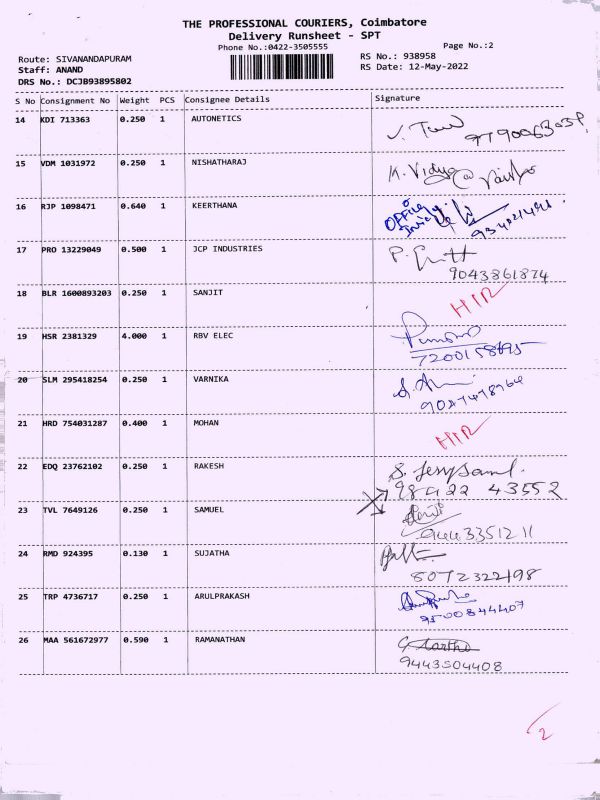 THE PROFESSIONAL COURIERS, Coimbatore
Delivery Runsheet - SPT
Phone No.:0422-3505555 Page No.:2
Route: SIVANANDAPURAM RS No.: 938958
Staff: ANAND RS Date: 12-May-2022
DRS No.: DCJB93895802
S No Consignment No Weight PCS Consignee Details Signature
14 KDI 713363 0.250 1 AUTONETICS
15 VDM 1031972 0.250 1 NISHATHARAJ K. Vidya
16 RJP 1098471 0.640 1 KEERTHANA Office
17 PRO 13229049 0.500 1 JCP INDUSTRIES
9043861874
18 BLR 1600893203 0.250 1 SANJIT HIR
19 HSR 2381329 4.000 1 RBV ELEC
7200158695
20 SLM 295418254 0.250 1 VARNIKA
21 HRD 754031287 0.400 1 MOHAN HIR
22 EDQ 23762102 0.250 1 RAKESH
98922 43552
23 TVL 7649126 0.250 1 SAMUEL
9443351211
24 RMD 924395 0.130 1 SUJATHA
8072322198
25 TRP 4736717 0.250 1 ARULPRAKASH
9500844407
26 MAA 561672977 0.590 1 RAMANATHAN
9443504408
2